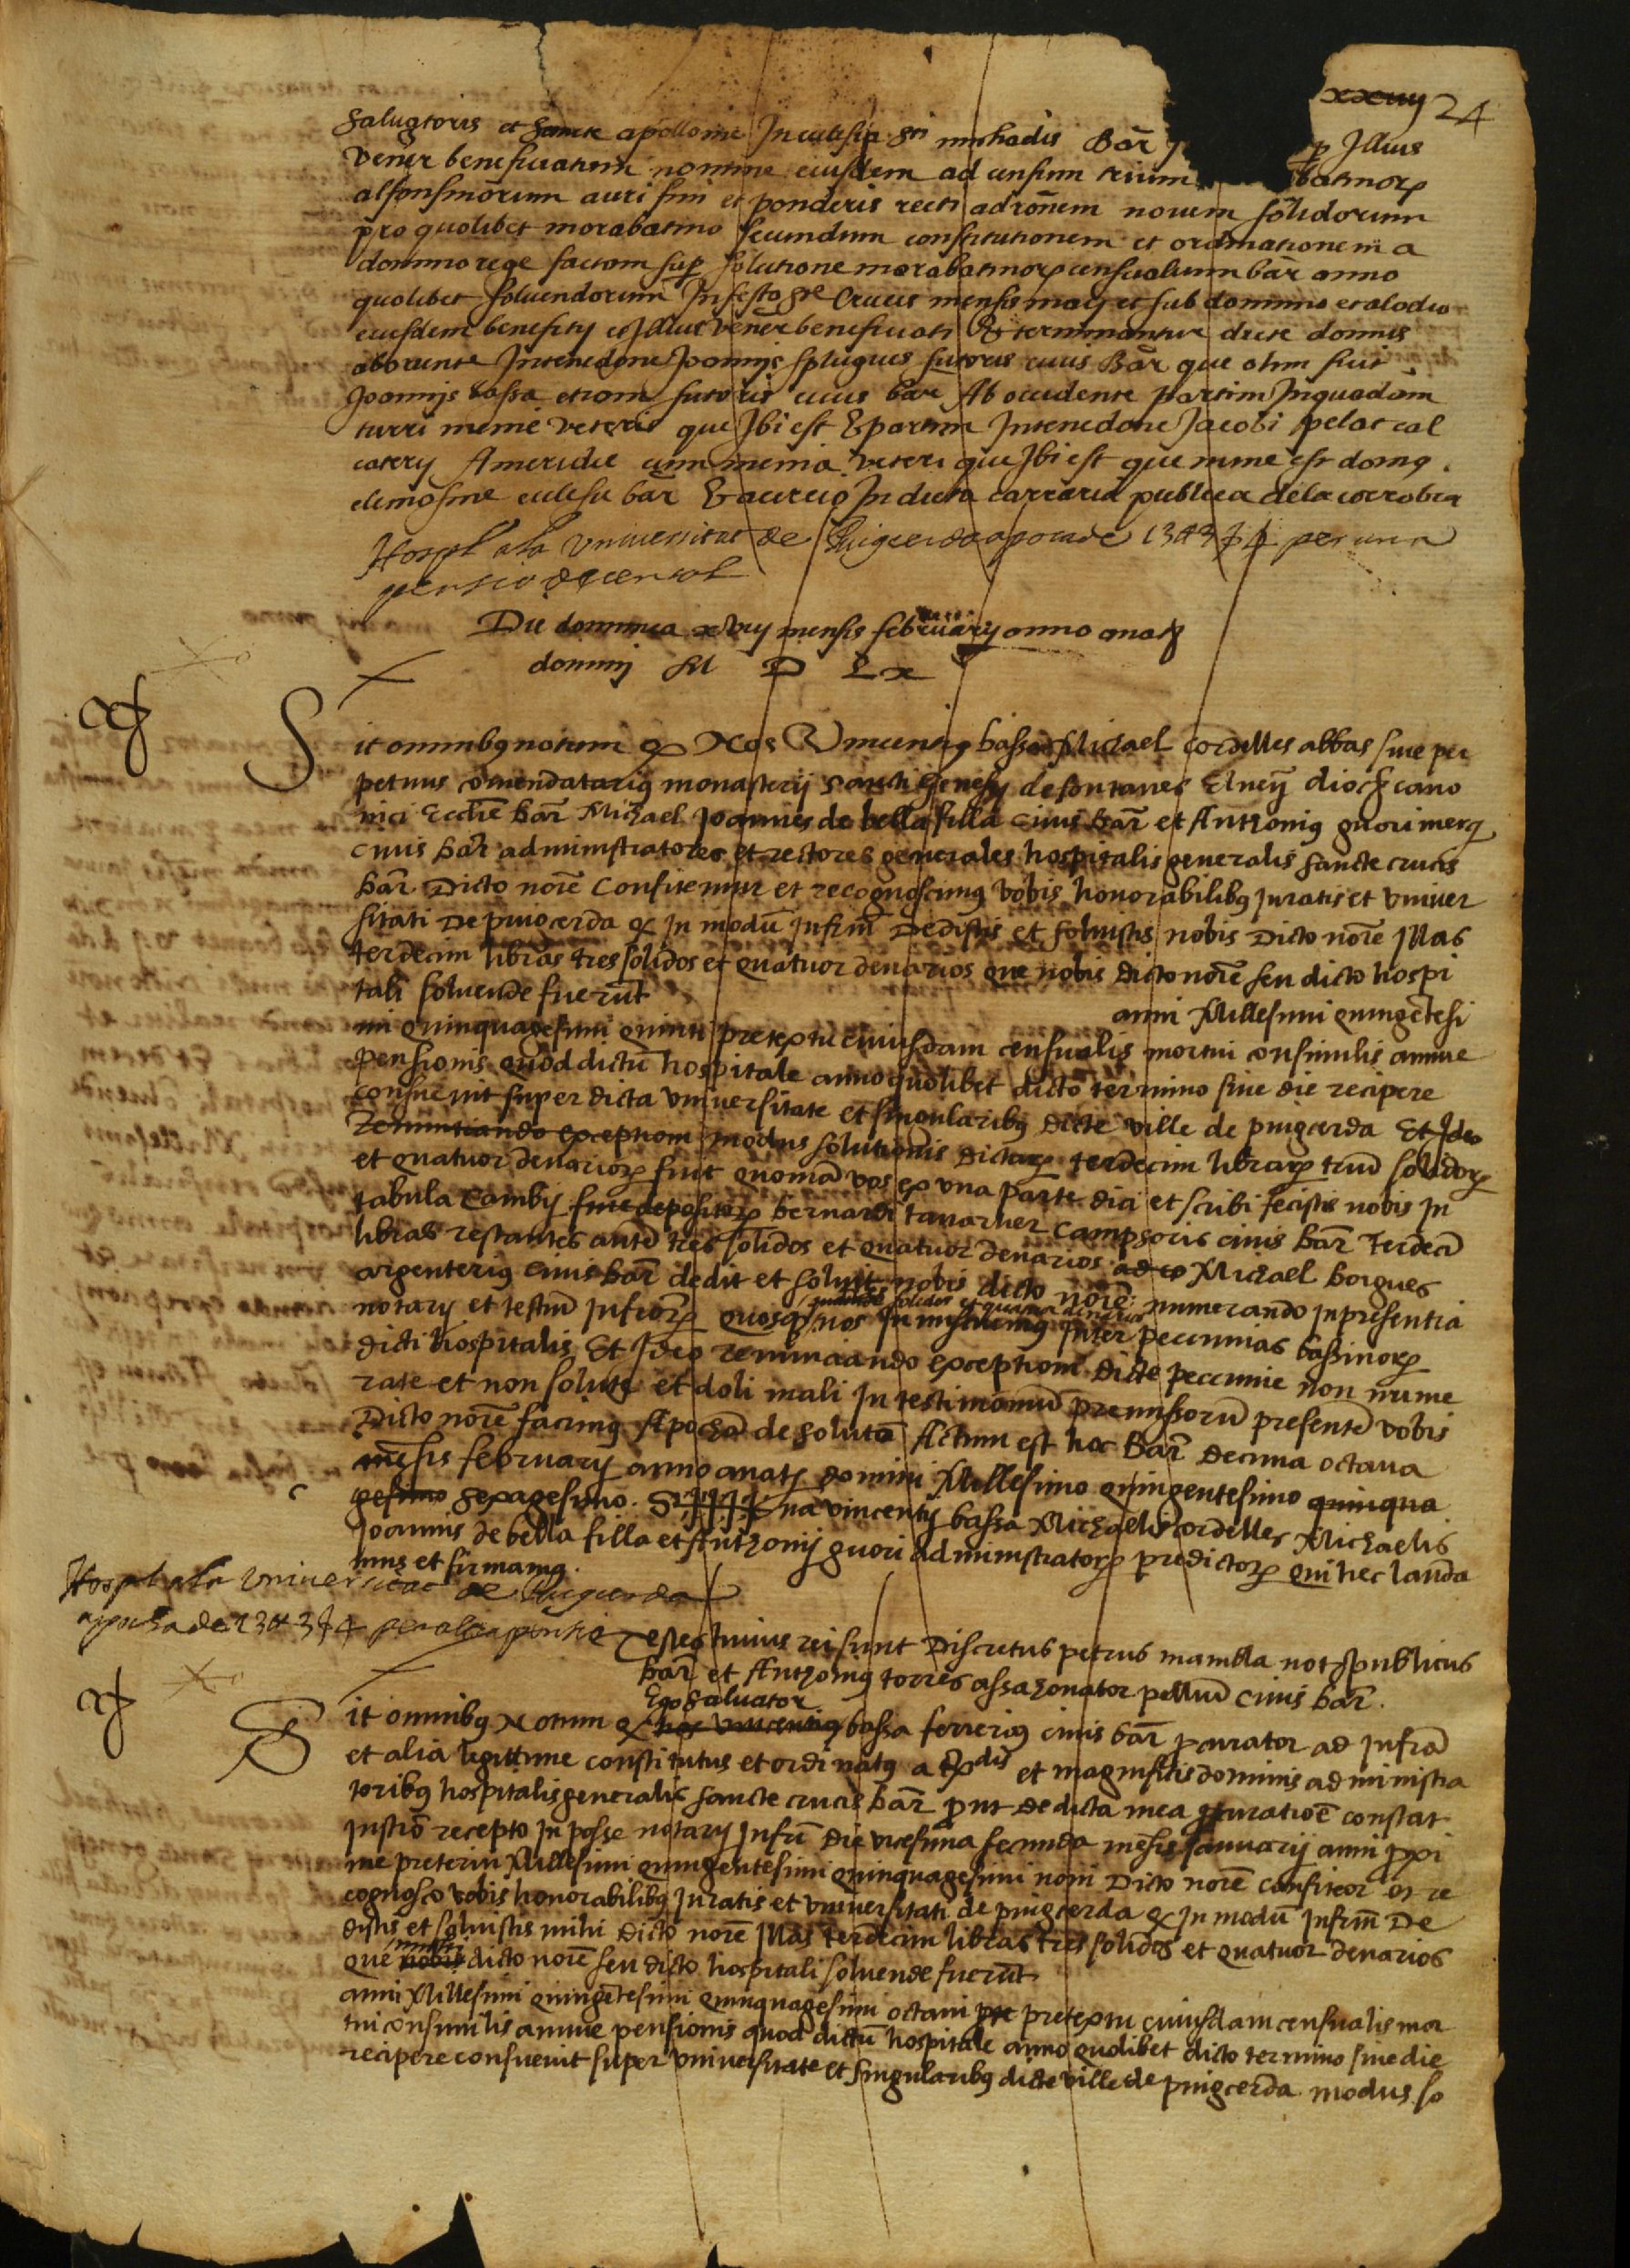 xxiiij 24
Saluatoris et Sancte apollonie In ecclesia sti michaelis Bar̄ p Illius
Vener beneficiatum nomine eiusdem ad censum trium batinoꝝ
alfonsinorum auri fini et ponderis recti ad rōnem nouem solidorum
pro quolibet morabatino secundum constitutionem et ordinationem a
domino rege factam sup solutione morabatinoꝝ censualium bar̄ anno
quolibet soluendorum In festo ste Crucis mensis maij et sub dominio et alodio
eiusdem benefitij et Illius vener beneficiati Et terminantur dicte domus
ab oriente In tenedone Joannis splugues sutoris ciuis Bar̄ que olim fuit
Joannis bassa etiam sutoris ciuis bar̄ Ab occidente partim In quadam
turri menie veteris que Ibi est Et partim In tenedone Jacobi pelat cal
caterij A meridie cum menia veteri que Ibi est que nunc est domꝰ
elemosine eclesie bar̄ Et a circio In dicta carraria publica de la corribia
Hospl a la Vniuersitat de Puigcerda apocha de 13 ll 3 ß 4 per una
pensio de censal
Die dominica xviij mensis februarij anno a natꝫ
dominj M D Lx
Sit omnibꝰ notum ꝙ Nos Vincentiꝰ bassa Michael Cordelles abbas siue per
petuus comendatariꝰ monasterij Sancti Genesij de fontanes Elneñ dioc̄ cano
nici Ecclīe bar̄ Michael Joannes de bella filla ciuis bar̄ et Anthoniꝰ guori mercꝫ
ciuis bar̄ administratores et rectores generales hospitalis generalis sancte crucis
bar̄ Dicto noīe Confitemur et recognoscimꝰ vobis honorabilibꝰ juratis et vniuer
sitati De puigcerda ꝙ In modū infrm̄ Dedistis et soluistis nobis Dicto noīe Illas
terdecim libras tres solidos et quatuor denarios que nobis dicto noīe seu dicto hospi
tali soluende fuerūt anni Millesimi quingētesi
mi quinquagesimi quinti pretextu cuiusdam censualis mortui consimilis annue
pensionis quod dictū hospitale anno quolibet dicto termino siue die recipere
consueuit super dicta vniuersitate et singularibꝰ dicte ville de puigcerda Et Ideo
Renuntiando exceptioni modus solutionis dictaꝝ terdecim libraꝝ triū solidoꝝ
et quatuor denarioꝝ fuit quoniā vos ex vna parte dici et scribi fecistis nobis In
tabula Cambij siue depositoꝝ bernardi tauarner Campsoris ciuis bar̄ terdecī
libras restantes autē tres solidos et quatuor denarios ad co Michael borgues
argenteriꝰ ciuis bar̄ dedit et soluit nobis dicto noīe numerando In presentia
notarij et testiū Infroꝝ quosq̄ tres solidos et quatuor denarios nos In misimꝰ Inter peccunias bassinoꝝ
dicti hospitalis Et Ideo renunciando exceptioni dicte peccunie non nume
rate et non solute et doli mali In testimoniū premissorū presentē vobis
Dicto noīe facimꝰ Apochā de soluto Actum est hoc bar̄ Decima octaua
mēsis februarij anno a natꝫ domini Millesimo quingentesimo quinqua
gesimo sexagesimo. Sig++++na vincentij bassa Michaelis cordelles Michaelis
Joannis de bella filla et Anthonij guori administratoꝝ predictoꝝ qui hec lauda
mus et firmamꝰ.
Hospl a la vniuersitat de Puigcerda
apocha de 13 ll 3 ß 4 per altra pensio
Testes huius rei sunt Discretus petrus mambla notꝫ publicus
bar̄ et Anthoniꝰ torres assahonator pelliū ciuis bar̄.
Sit omnibꝰ Notum ꝙ nos vincentiꝰ Ego Saluator bassa ferreriꝰ ciuis bar̄ procurator ad Infrā
et alia legittime constitutus et ordinatꝰ a Rdis et magnificis dominis administra
toribꝰ hospitalis generalis sancte crucis bar̄ prout de dicta mea procuratioē constat
Instrō recepto In posse notarij Infrī die vicesima secunda mēsis Januarij anni proxi
me preteriti Millesimi quingentesimi quinquagesimi noni Dicto noīe confiteor et re
cognosco vobis honorabilibꝰ juratis et vniuersitati de puigcerda ꝙ In modū infrm̄ De
distis et soluistis mihi dicto noīe Illas terdecim libras tres solidos et quatuor denarios
que nobis mihi dicto noīe seu dicto hospitali soluende fuerūt
anni Millesimi quingētesimi quinquagesimi octaui pre pretextu cuiusdam censualis mor
tui consimilis annue pensionis quod dictū hospitale anno quolibet dicto termino siue die
recipere consueuit super vniuersitate et singularibꝰ dicte ville de puigcerda modus so